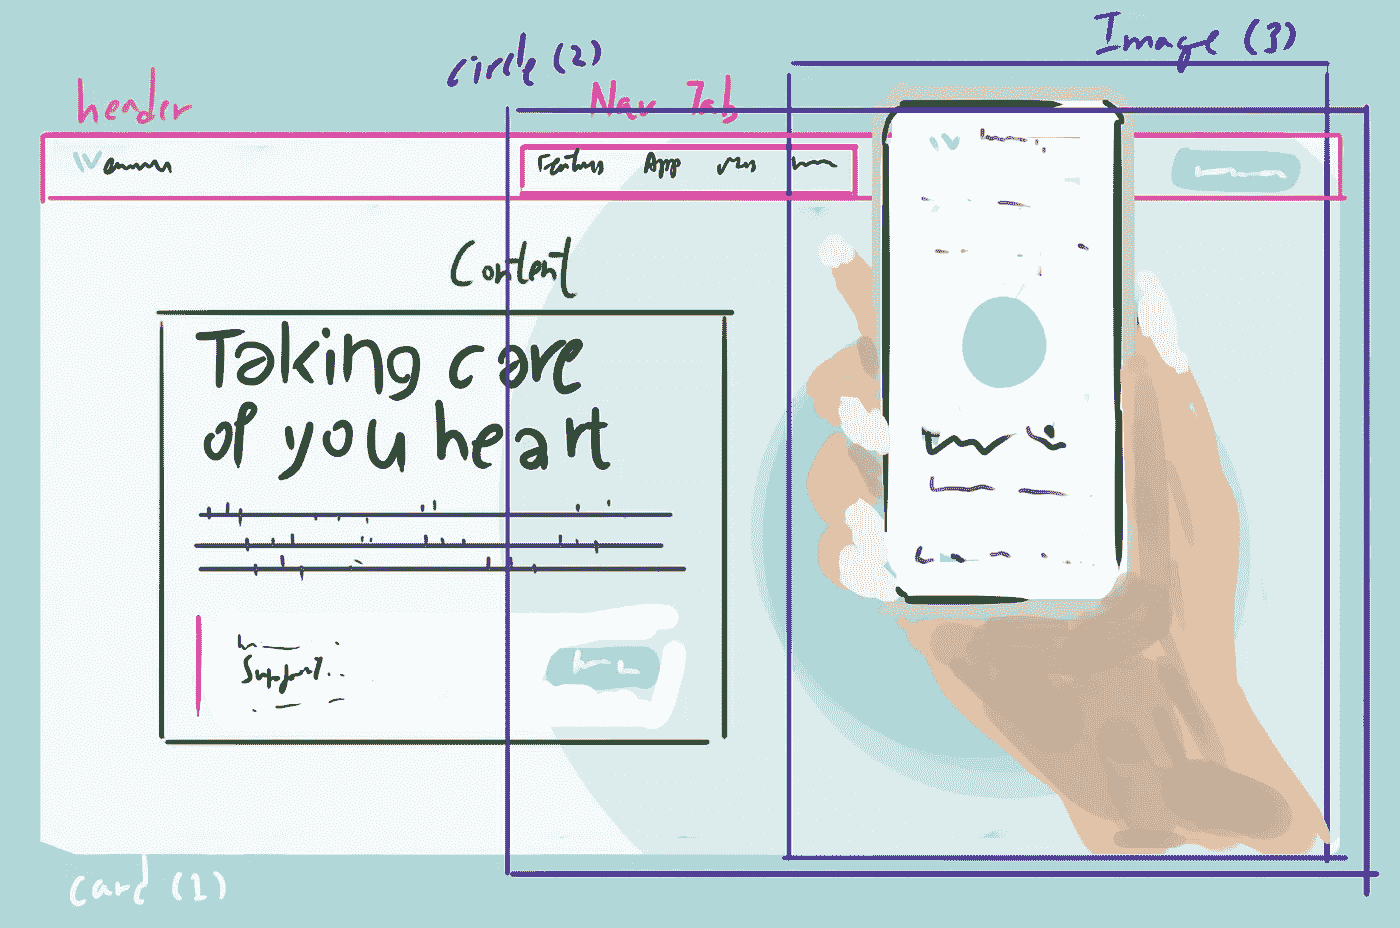 Image (3)
circle (2)
header
Nav Tab
Features App
Content
Taking care
of you heart
Support..
card (1)